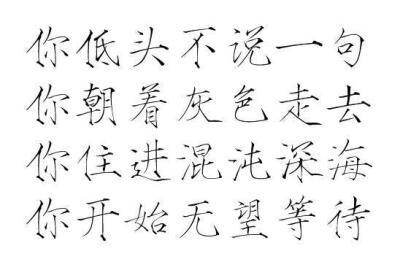 你低头不说一句
你朝着灰色走去
你住进混沌深海
你开始无望等待